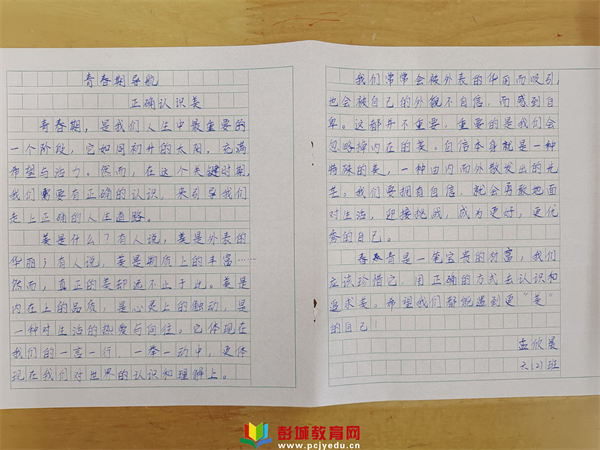 青春期导航
正确认识美
青春期，是我们人生中最重要的
一个阶段，它如同初升的太阳，充满
希望与活力。然而，在这个关键时期
我们需要有正确的认识，来引导我们
走上正确的人生道路。
美是什么？有人说，美是外表的
华丽；有人说，美是物质上的丰富……
然而，真正的美却远不止于此。美是
内在上的品质，是心灵上的触动，是
一种对生活的热爱与向往。它体现在
我们的一言一行，一举一动中，更体
现在我们对世界的认识和理解上。
我们常常会被外表的华丽而吸引
也会被自己的外貌不自信，而感到自
卑。这都并不重要，重要的是我们会
忽略掉内在的美。自信本身就是一种
特殊的美，一种由内而外散发出的光
芒。我们要拥有自信，就会勇敢地面
对生活，迎接挑战，成为更好，更优
秀的自己。
春青是一笔宝贵的财富，我们
应该珍惜它，用正确的方式去认识和
追求美。希望我们都能遇到更“美”
的自己！
孟欣晨
六（2）班
彭城教育网
www.pcjyedu.cn